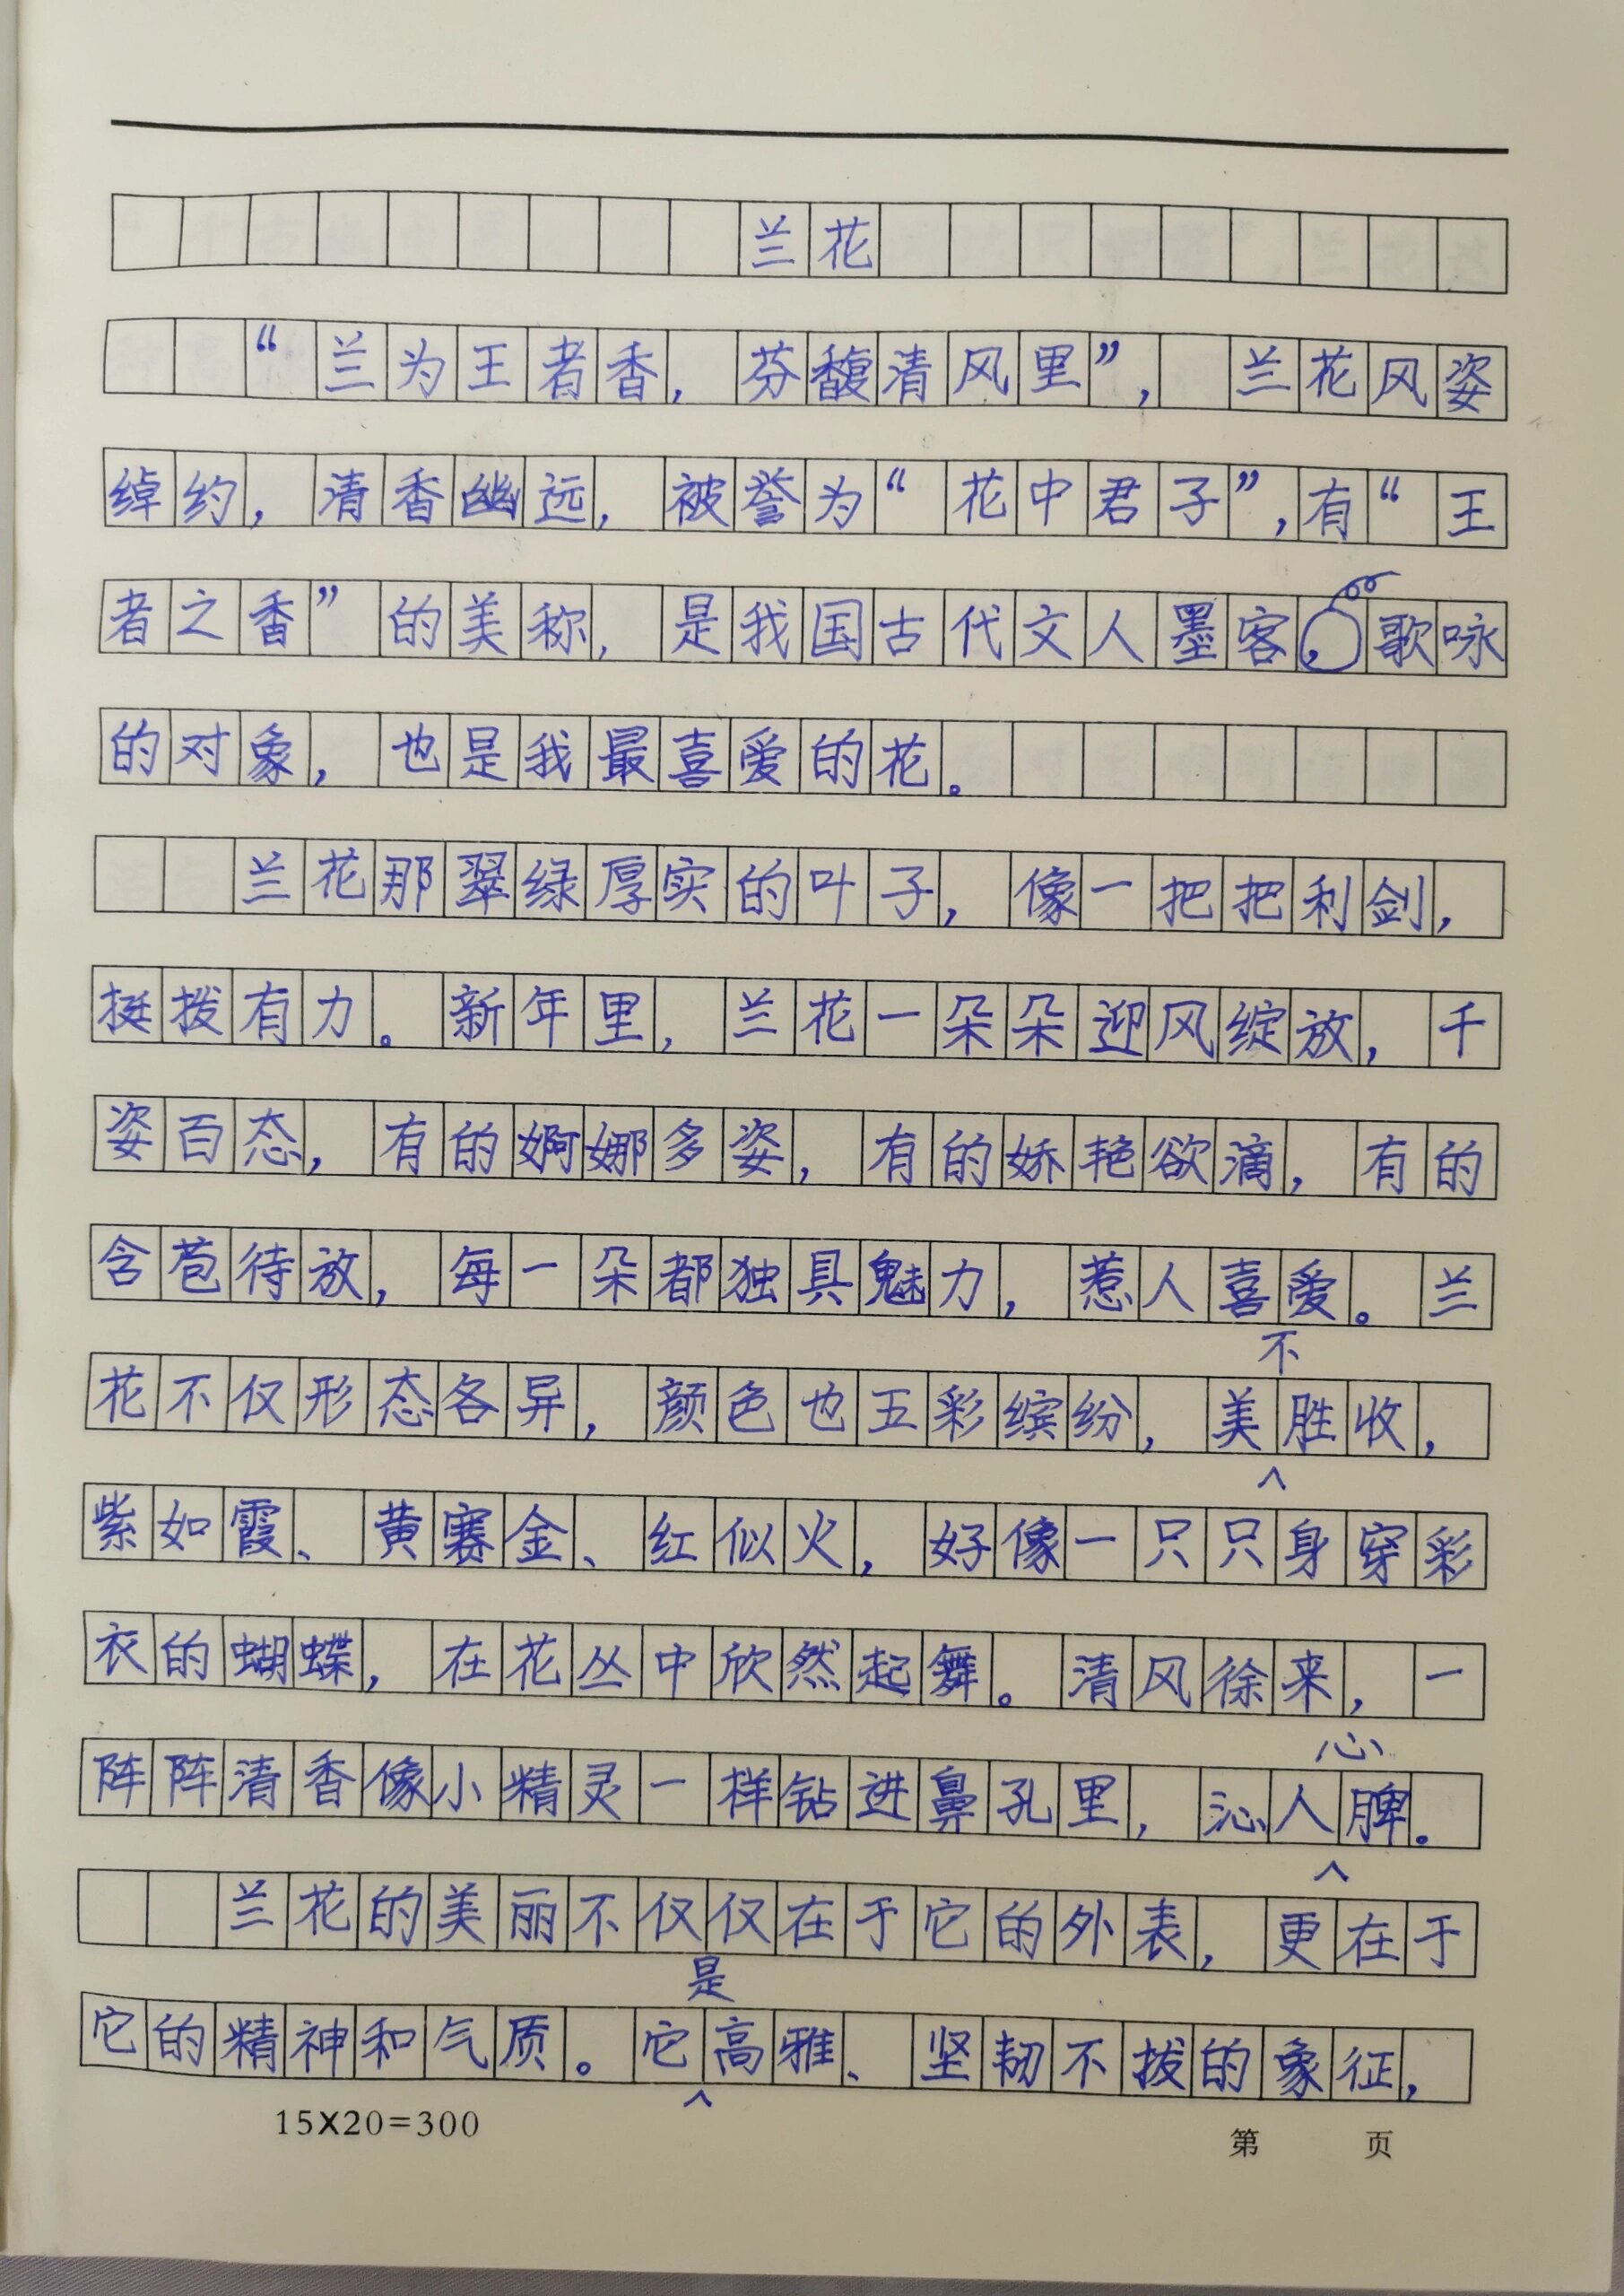 兰花
“兰为王者香，芬馥清风里”，兰花风姿
绰约，清香幽远，被誉为“花中君子”，有“王
者之香”的美称，是我国古代文人墨客歌咏
的对象，也是我最喜爱的花。
兰花那翠绿厚实的叶子，像一把把利剑，
挺拨有力。新年里，兰花一朵朵迎风绽放，千
姿百态，有的婀娜多姿，有的娇艳欲滴，有的
含苞待放，每一朵都独具魅力，惹人喜爱。兰
花不仅形态各异，颜色也五彩缤纷，美不胜收，
紫如霞、黄赛金、红似火，好像一只只身穿彩
衣的蝴蝶，在花丛中欣然起舞。清风徐来，一
阵阵清香像小精灵一样钻进鼻孔里，沁人心脾。
兰花的美丽不仅仅在于它的外表，更在于
它的精神和气质。它是高雅、坚韧不拔的象征，
15X20=300
第 页